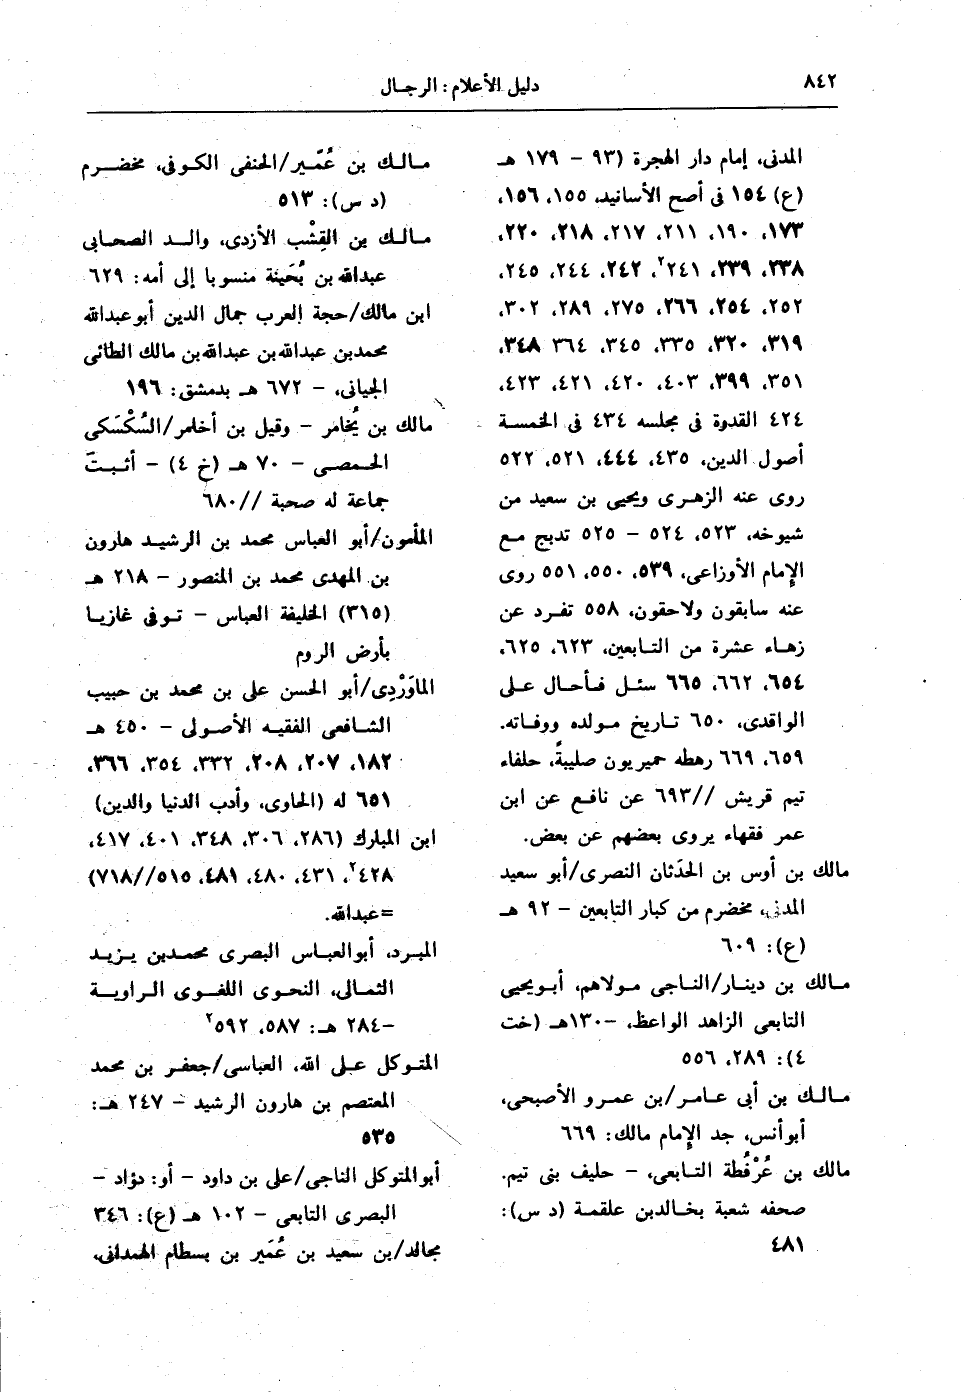 ٨٤٢
دليل الأعلام: الرجال
المدنى، إمام دار الهجرة (٩٣ - ١٧٩ هـ
(ع) ١٥٤ فى أصح الأسانيد، ١٥٥، ١٥٦،
١٧٣، ١٩٠، ٢١١، ٢١٧، ٢١٨، ٢٢٠،
٢٣٨، ٢٣٩، ٢٤١٢، ٢٤٢، ٢٤٤، ٢٤٥،
٢٥٢، ٢٥٤، ٢٦٦، ٢٧٥، ٢٨٩، ٣٠٢،
٣١٩، ٣٢٠، ٣٣٥، ٣٤٥، ٣٦٤ ٣٤٨،
٣٥١، ٣٩٩، ٤٠٣، ٤٢٠، ٤٢١، ٤٢٣،
٤٢٤ القدوة فى مجلسه ٤٣٤ فى الخمسة
أصول الدين، ٤٣٥، ٤٤٤، ٥٢١، ٥٢٢
روى عنه الزهرى ويحيى بن سعيد من
شيوخه، ٥٢٣، ٥٢٤ - ٥٢٥ تدبج مع
الإمام الأوزاعى، ٥٣٩، ٥٥٠، ٥٥١ روى
عنه سابقون ولاحقون، ٥٥٨ تفرد عن
زهاء عشرة من التابعين، ٦٢٣، ٦٢٥،
٦٥٤، ٦٦٢، ٦٦٥ سئل فأحال على
الواقدى، ٦٥٠ تاريخ مولده ووفاته.
٦٥٩، ٦٦٩ رهطه حميريون صليبةً، حلفاء
تيم قريش //٦٩٣ عن نافع عن ابن
عمر فقهاء يروى بعضهم عن بعض.
مالك بن أوس بن الحَدَثان النصرى/أبو سعيد
المدنى، مخضرم من كبار التابعين - ٩٢ هـ
(ع): ٦٠٩
مالك بن دينار/الناجى مولاهم، أبويحيى
التابعى الزاهد الواعظ، -١٣٠هـ (خت
٤): ٢٨٩، ٥٥٦
مالك بن أبى عامر/بن عمرو الأصبحى،
أبوأنس، جد الإمام مالك: ٦٦٩
مالك بن عُرْفُطة التابعى، - حليف بنى تيم.
صحفه شعبة بخالدبن علقمة (د س):
٤٨١
مالك بن عُمَير/الحنفى الكوفى، مخضرم
(د س): ٥١٣
مالك بن القِشْب الأزدى، والد الصحابى
عبدالله بن بُحَينة منسوبا إلى أمه: ٦٢٩
ابن مالك/حجة العرب جمال الدين أبوعبدالله
محمدبن عبدالله بن عبدالله بن مالك الطائى
الجيانى، - ٦٧٢ هـ بدمشق: ١٩٦
مالك بن يُخَامر - وقيل بن أخامر/السُكْسَكى
الحمصى - ٧٠ هـ (خ ٤) - أثبتَ
جماعة له صحبة //٦٨٠
المأمون/أبو العباس محمد بن الرشيد هارون
بن المهدى محمد بن المنصور - ٢١٨ هـ
(٣١٥) الخليفة العباس - توفى غازيا
بأرض الروم
الماوَرْدِى/أبو الحسن على بن محمد بن حبيب
الشافعى الفقيه الأصولى - ٤٥٠ هـ
١٨٢، ٢٠٧، ٢٠٨، ٣٣٢، ٣٥٤، ٣٦٦،
٦٥١ له (الحاوى، وأدب الدنيا والدين)
ابن المبارك (٢٨٦، ٣٠٦، ٣٤٨، ٤٠١، ٤١٧،
٤٢٨٢، ٤٣١، ٤٨٠، ٤٨١، ٥١٥//٧١٨)
=عبدالله.
المبرد، أبوالعباس البصرى محمدبن يزيد
الثمالى، النحوى اللغوى الراوية
-٢٨٤ هـ: ٥٨٧، ٥٩٢٢
المتوكل على الله، العباسى/جعفر بن محمد
المعتصم بن هارون الرشيد - ٢٤٧ هـ:
٥٣٥
أبوالمتوكل الناجى/على بن داود - أو: دؤاد -
البصرى التابعى - ١٠٢ هـ (ع): ٣٤٦
مجالد/بن سعيد بن عُمَير بن بسطام الهمدانى،